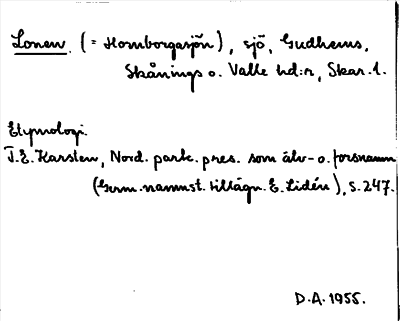 Lonen. (= Hornborgasjön), sjö, Gudhems,
Skånings o. Valle hd:r, Skar. l.
Etymologi.
T.E. Karsten, Nord. partc. pres. som älv- o. forsnamn
(Germ. namnst. tillägn. E. Lidén), s. 247.
D.A. 1955.